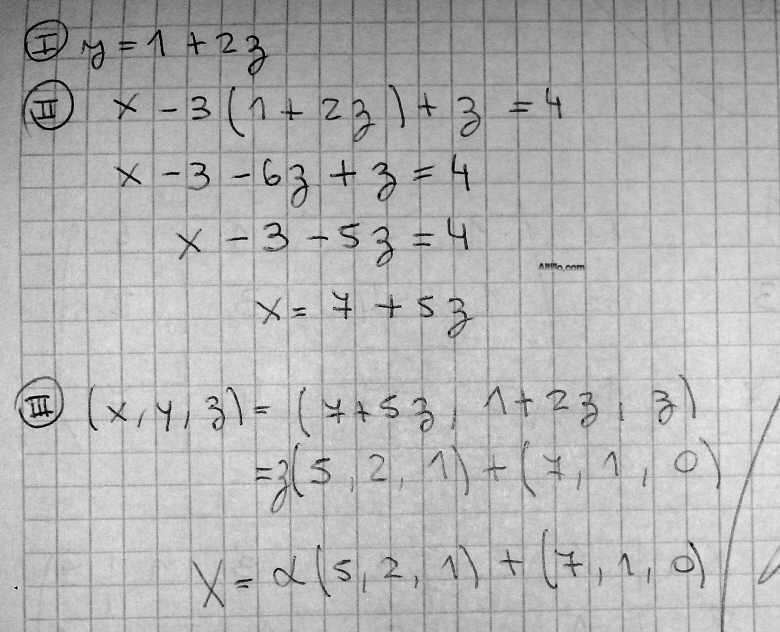 Ⅰ y = 1 + 2z
Ⅱ x - 3(1 + 2z) + z = 4
x - 3 - 6z + z = 4
x - 3 - 5z = 4
x = 7 + 5z
Ⅲ (x, y, z) = (7+5z, 1+2z, z)
= z(5, 2, 1) + (7, 1, 0)
X = α(5, 2, 1) + (7, 1, 0)